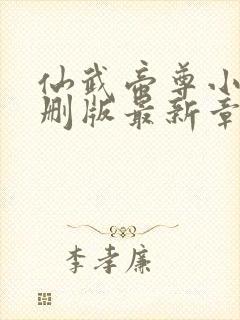 仙武帝尊小
删版最新章
李孝廉